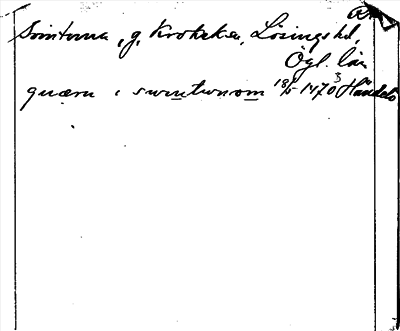 Svintuna, g, Krokeks, Lösings hd,
Ögl. län
quærn i swintunom 18/5 1470 3